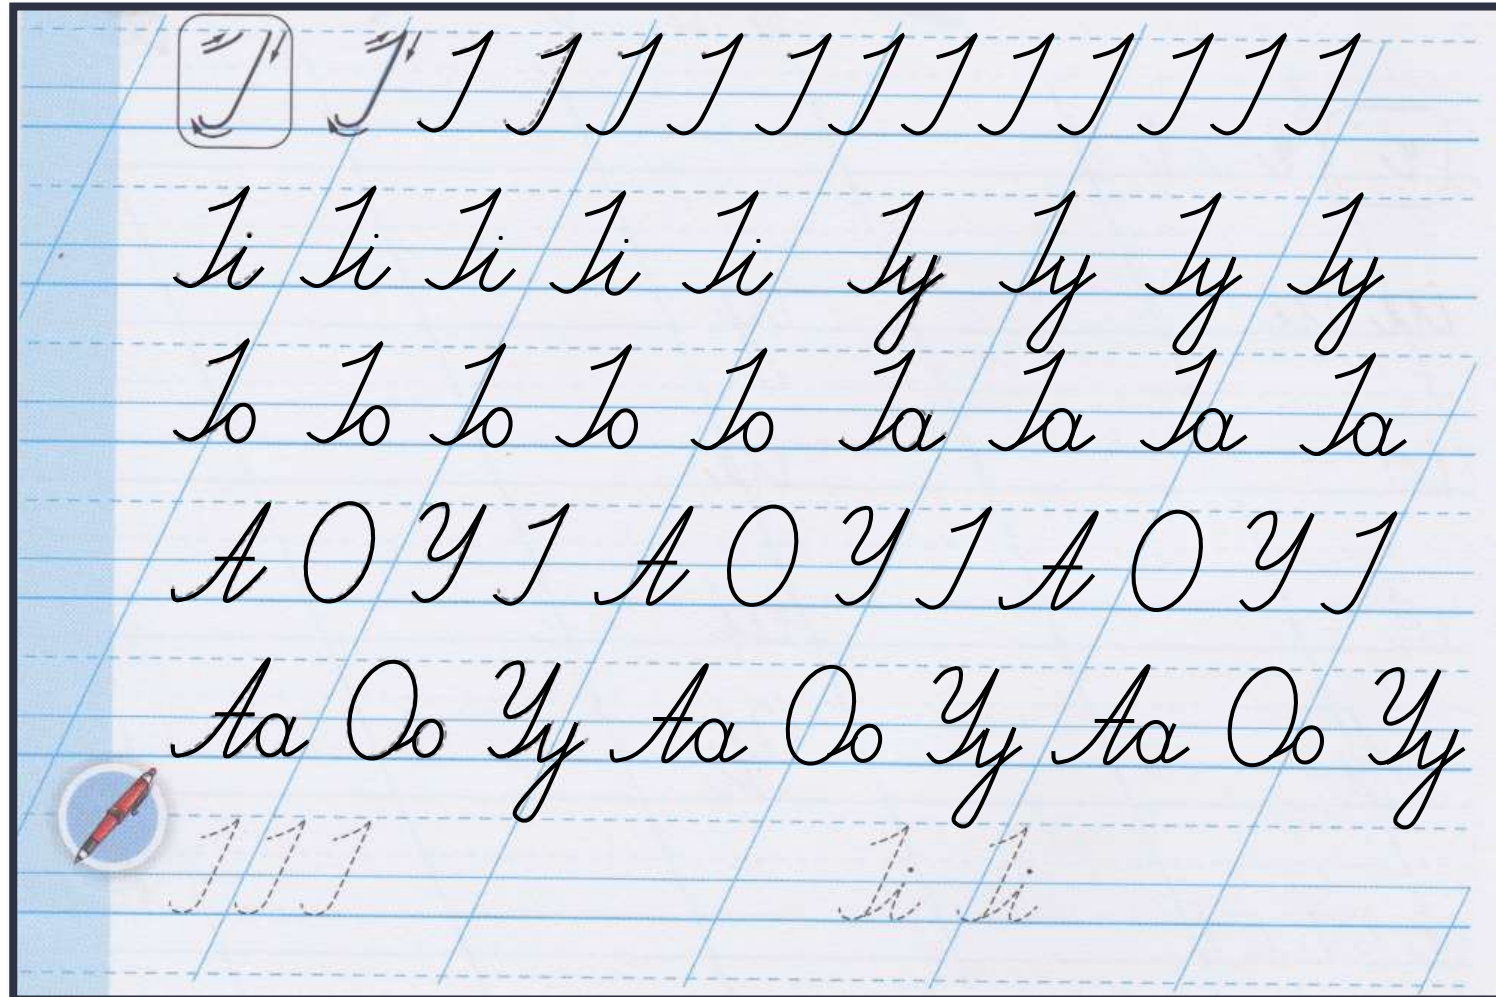 І І І І І І І І І І І І І І
Іі Іі Іі Іі Іі Іу Іу Іу Іу
Іо Іо Іо Іо Іо Іа Іа Іа Іа
А О У І А О У І А О У І
Аа Оо Уу Аа Оо Уу Аа Оо Уу
І І І Іі Іі